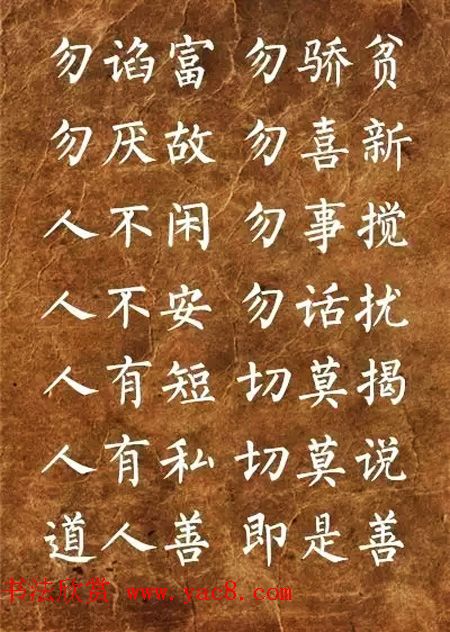 勿谄富 勿骄贫
勿厌故 勿喜新
人不闲 勿事搅
人不安 勿话扰
人有短 切莫揭
人有私 切莫说
道人善 即是善
书法欣赏 www.yac8.com